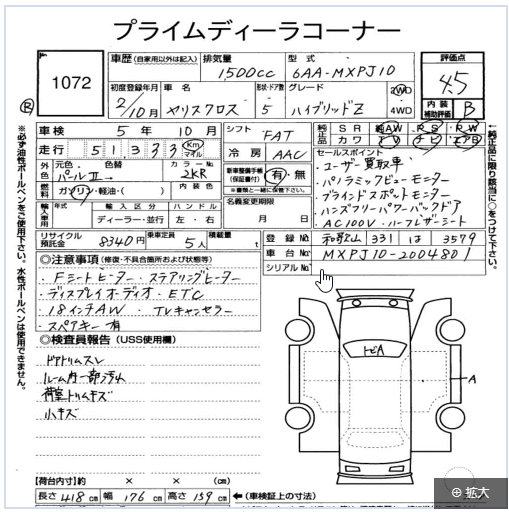 プライムディーラコーナー
1072
車歴 (自家用以外は記入)
排気量 1500cc
型式 6AA-MXPJ10
評価点 4.5
初度登録年月 2/10月
車名 ヤリスクロス
形状・ドア数 5
グレード ハイブリッドZ
2WD
4WD
内装補助評価 B
※必ず油性ボールペンをご使用下さい。水性ボールペンは使用できません。
車検 5年10月
シフト FAT
純正品 SR 純AW PS PW
カワ TV ナビ エアB
走行 51333 Km マイル
冷房 AAC
セールスポイント
・ユーザー買取車
・パノラミックビューモニター
・ブラインドスポットモニター
・ハンズフリーパワーバックドア
・AC100V・ハーフレザーシート
←純正品に限り該当に○をつけて下さい。
外色 元色 色替 パールII→
カラーNo. 2KR
新車整備手帳(保証書付) 有・無
※書類と一緒に保管下さい。
ガソリン・軽油・( )
内装色
名義変更期限
月 日
輸入車用 年式 輸入区分 ハンドル
ディーラー・並行 左・右
リサイクル預託金 8340円
乗車定員 5人
積載量 t
登録No. 和歌山 331 は 3579
車台No. MXPJ10-2004801
シリアルNo.
◎注意事項 (修復・不具合箇所および状態等)
・Fシートヒーター・ステアリングヒーター
・ディスプレイオーディオ・ETC
・18インチAW ・TVキャンセラー
・スペアキー有
◎検査員報告 (USS使用欄)
ドアトリムスレ
ルーム内一部汚れ
荷室トリムキズ
小キズ
トビA
A
【荷台内寸】 × × (cm)
長さ 418cm 幅 176cm 高さ 159cm ←(車検証上の寸法)
拡大